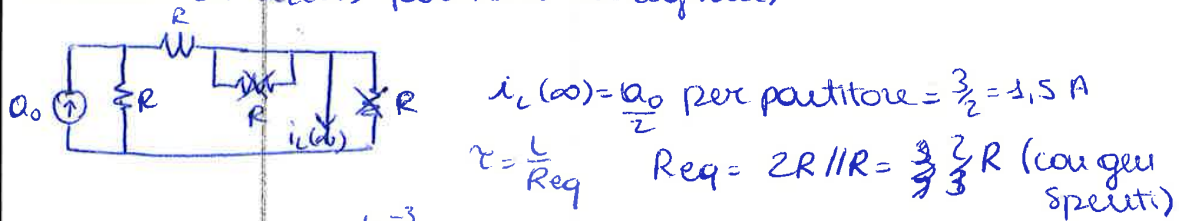 R
a₀ R R i_L(∞) R
i_L(∞) = a₀/2 per partitore = 3/2 = 1,5 A
τ = L/Req Req = 2R//R = 2/3 R (con gen
spenti)
-3